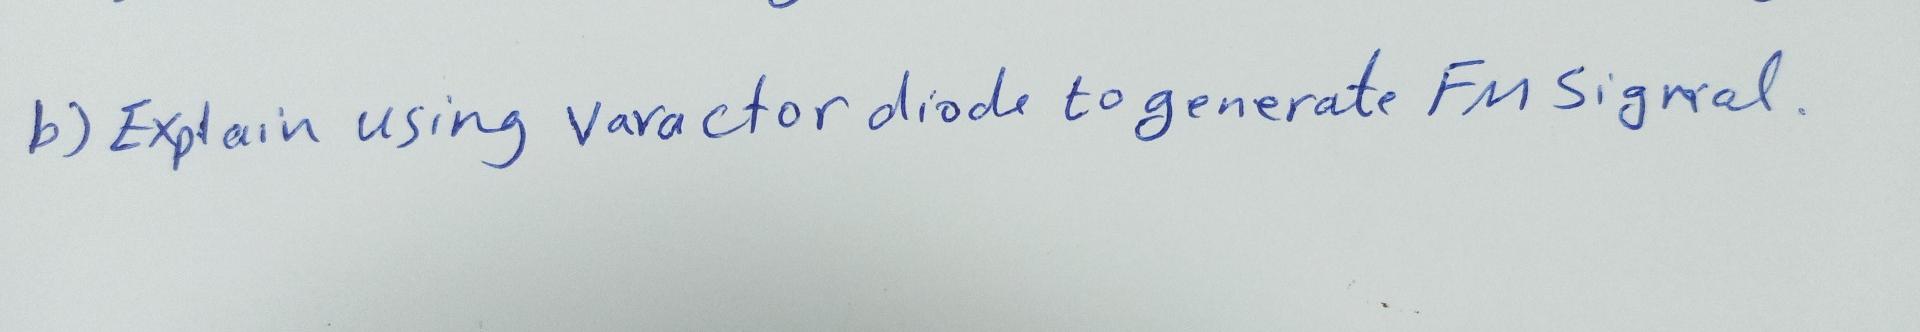 b) Explain using varactor diode to generate FM Signal.